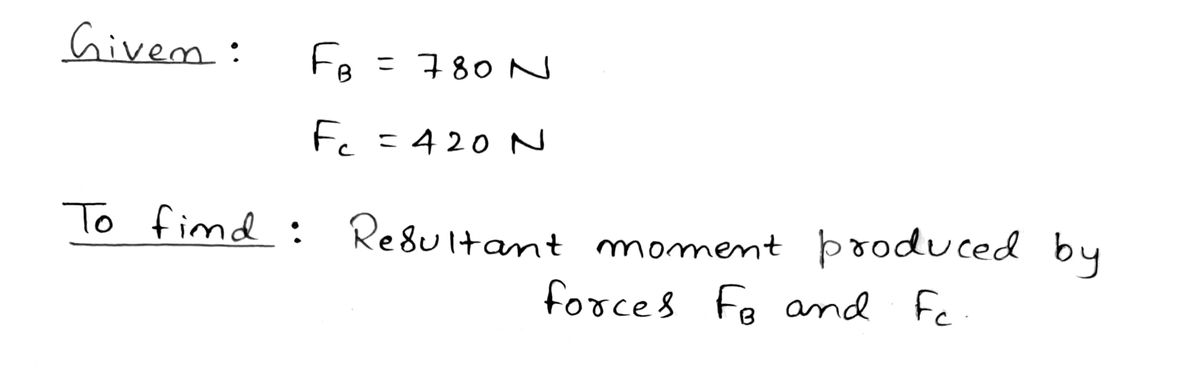 Given : F_B = 780 N
F_C = 420 N
To find : Resultant moment produced by
forces F_B and F_C.